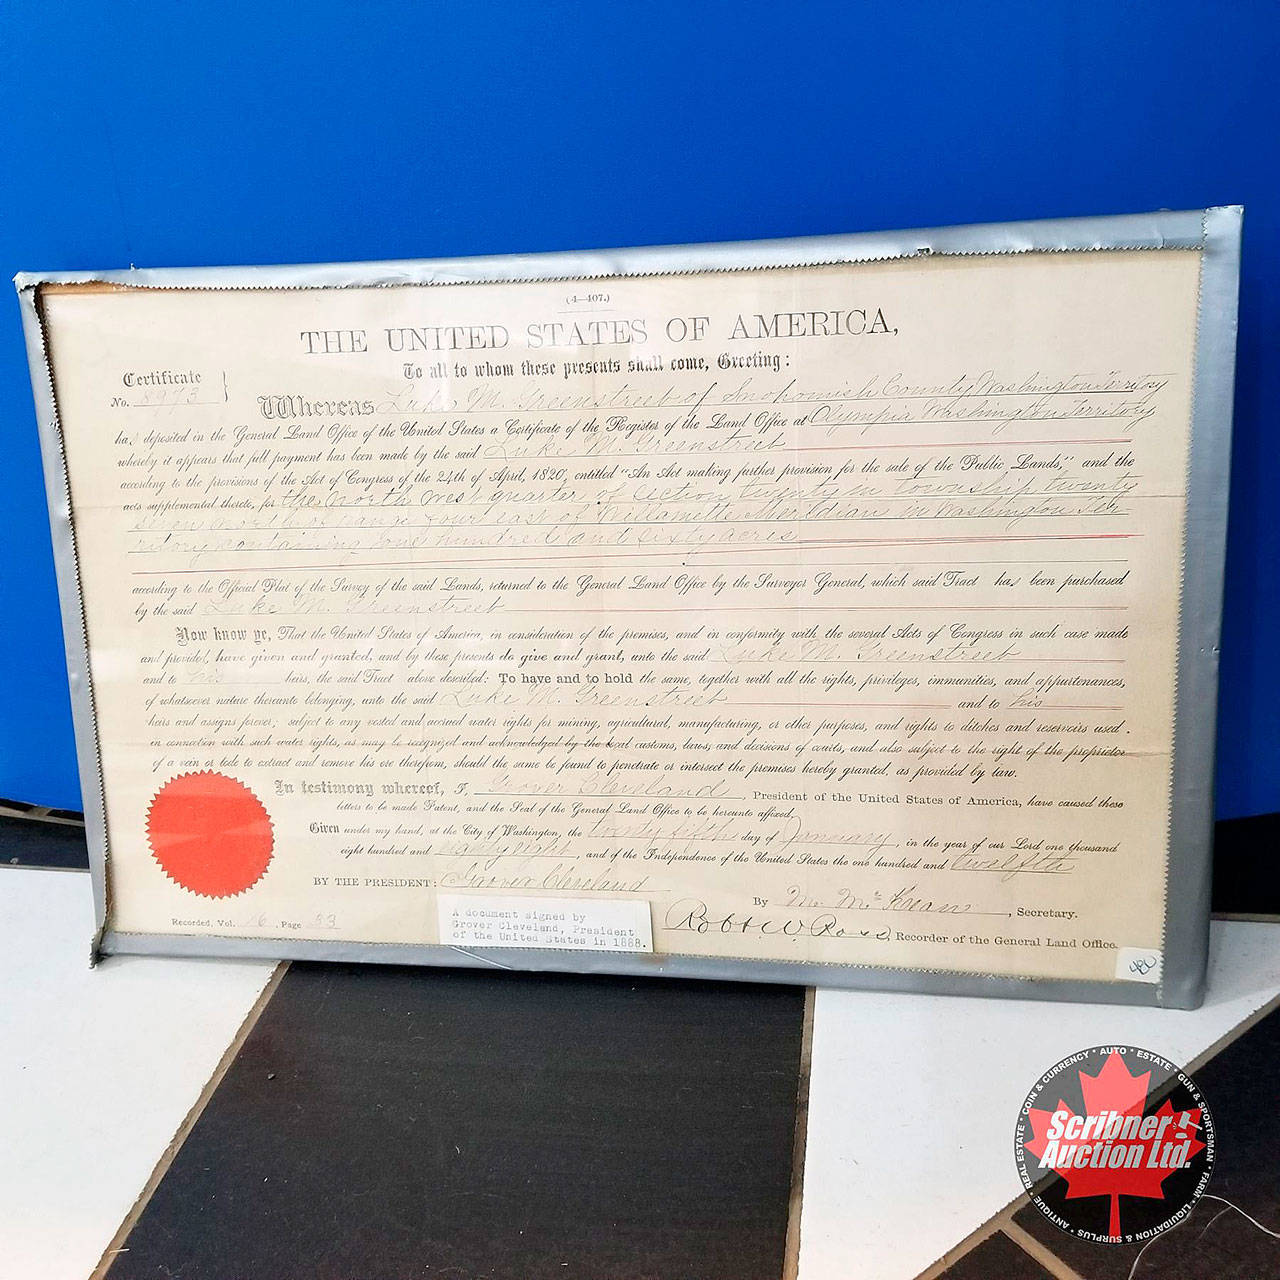 (4—407.)
THE UNITED STATES OF AMERICA,
To all to whom these presents shall come, Greeting:
Certificate
No. 8973
Whereas Luke M. Greenstreet of Snohomish County, Washington Territory
has deposited in the General Land Office of the United States a Certificate of the Register of the Land Office at Olympia Washington Territory
whereby it appears that full payment has been made by the said Luke M. Greenstreet
according to the provisions of the Act of Congress of the 24th of April, 1820, entitled “An Act making further provision for the sale of the Public Lands,” and the
acts supplemental thereto, for the North West quarter of Section twenty in Township twenty
seven North of Range four east of Willamette Meridian in Washington Ter-
ritory containing one hundred and sixty acres
according to the Official Plat of the Survey of the said Lands, returned to the General Land Office by the Surveyor General, which said Tract has been purchased
by the said Luke M. Greenstreet
Now know ye, That the United States of America, in consideration of the premises, and in conformity with the several Acts of Congress in such case made
and provided, have given and granted, and by these presents do give and grant, unto the said Luke M. Greenstreet
and to his heirs, the said Tract above described: To have and to hold the same, together with all the rights, privileges, immunities, and appurtenances,
of whatsoever nature thereunto belonging, unto the said Luke M. Greenstreet and to his
heirs and assigns forever; subject to any vested and accrued water rights for mining, agricultural, manufacturing, or other purposes, and rights to ditches and reservoirs used
in connection with such water rights, as may be recognized and acknowledged by the local customs, laws, and decisions of courts, and also subject to the right of the proprietor
of a vein or lode to extract and remove his ore therefrom, should the same be found to penetrate or intersect the premises hereby granted, as provided by law.
In testimony whereof, I, Grover Cleveland, President of the United States of America, have caused these
letters to be made Patent, and the Seal of the General Land Office to be hereunto affixed.
Given under my hand, at the City of Washington, the twenty fifth day of January, in the year of our Lord one thousand
eight hundred and eighty eight, and of the Independence of the United States the one hundred and twelfth
BY THE PRESIDENT: Grover Cleveland
By M. McKean, Secretary.
Recorded, Vol. 16, Page 33
A document signed by
Grover Cleveland, President
of the United States in 1888.
Robt. W. Ross, Recorder of the General Land Office.
480
REAL ESTATE * COIN & CURRENCY * AUTO * ESTATE * GUN & SPORTSMAN * FARM * LIQUIDATION & SURPLUS * ANTIQUE *
Scribner
Auction Ltd.